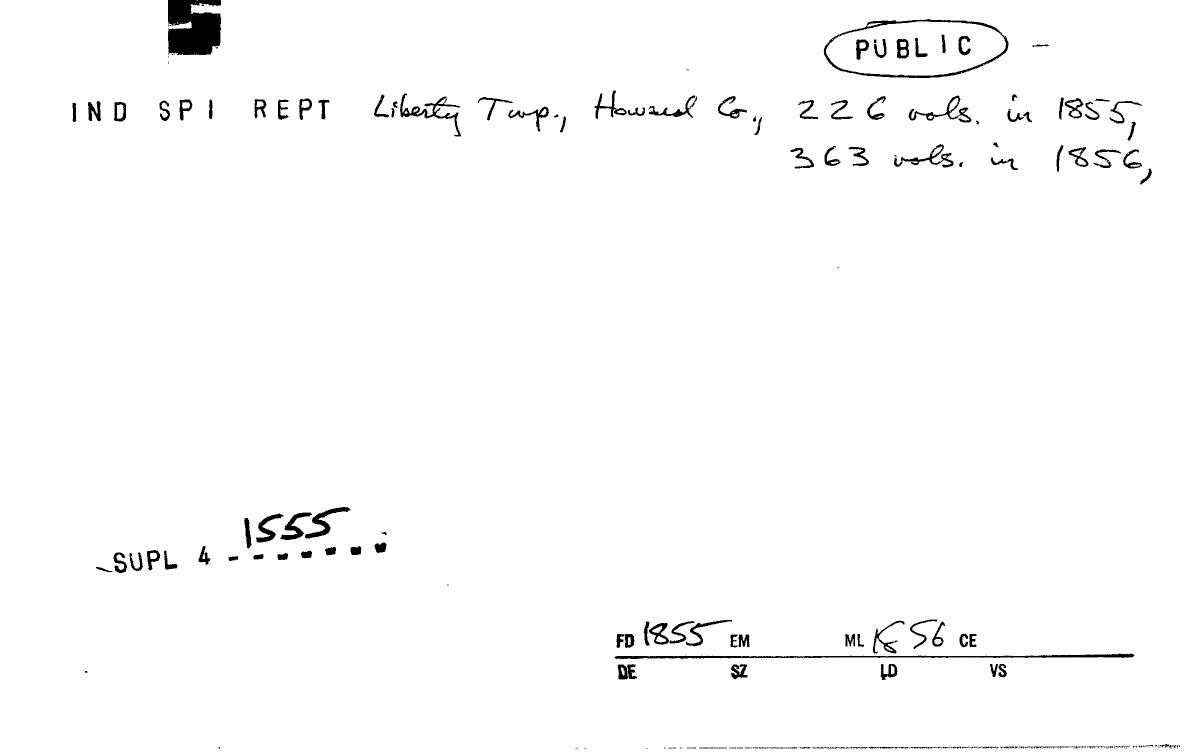 PUBLIC -
IND SPI REPT Liberty Twp., Howard Co., 226 vols. in 1855,
363 vols. in 1856,
SUPL 4 - 1555
FD 1855 EM ML 1856 CE
DE SZ LD VS